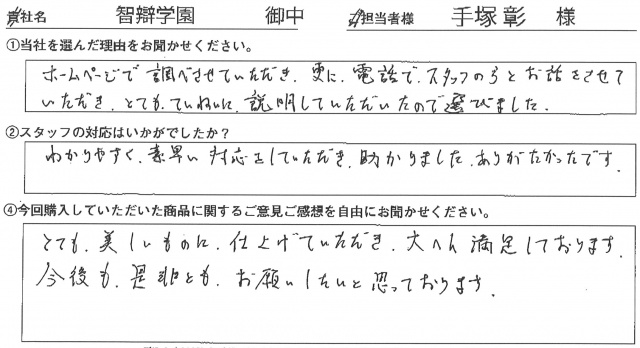 貴社名 智辯学園 御中 ご担当者様 手塚彰 様
①当社を選んだ理由をお聞かせください。
ホームページで調べさせていただき、更に、電話でスタッフの方とお話をさせて
いただき、とても、ていねいに、説明していただいたので選びました。
②スタッフの対応はいかがでしたか？
わかりやすく、素早い対応をしていただき、助かりました。ありがたかったです。
④今回購入していただいた商品に関するご意見ご感想を自由にお聞かせください。
とても、美しいものに、仕上げていただき、大へん満足しております。
今後も、是非とも、お願いしたいと思っております。